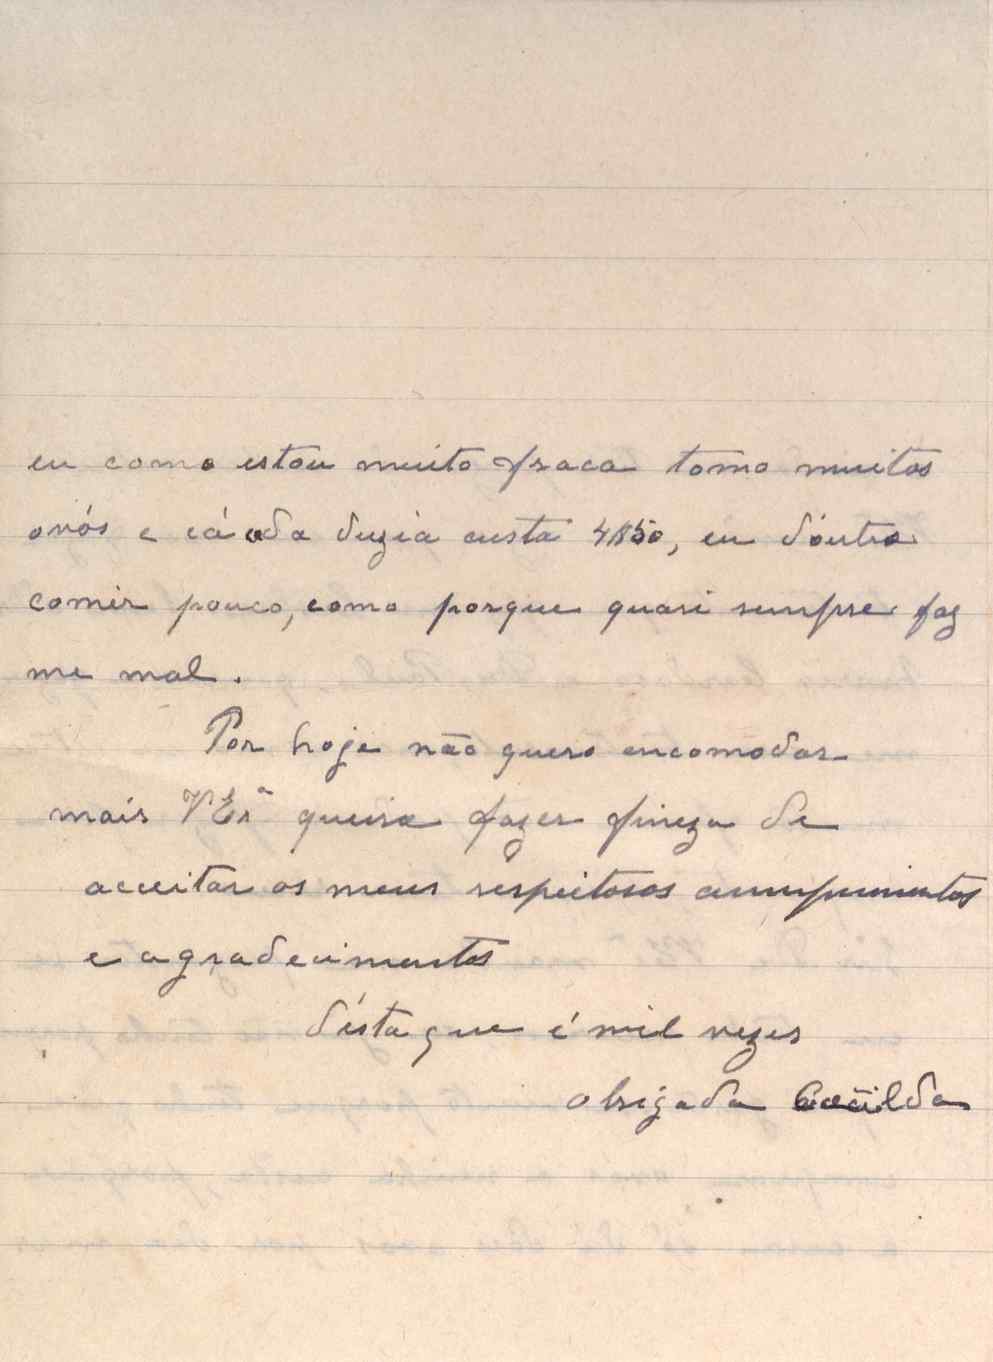 eu como estou muito fraca tomo muitos
ovós e cá cada duzia custa 4$50, eu d'outro
comêr pouco, como porque quasi sempre faz
me mal.
Por hoje não quero encomodar
mais VExª queira fazer fineza de
acceitar os meus respeitosos cumprimentos
e agradecimentos
d'ésta que é mil vezes
obrigada Cacilda